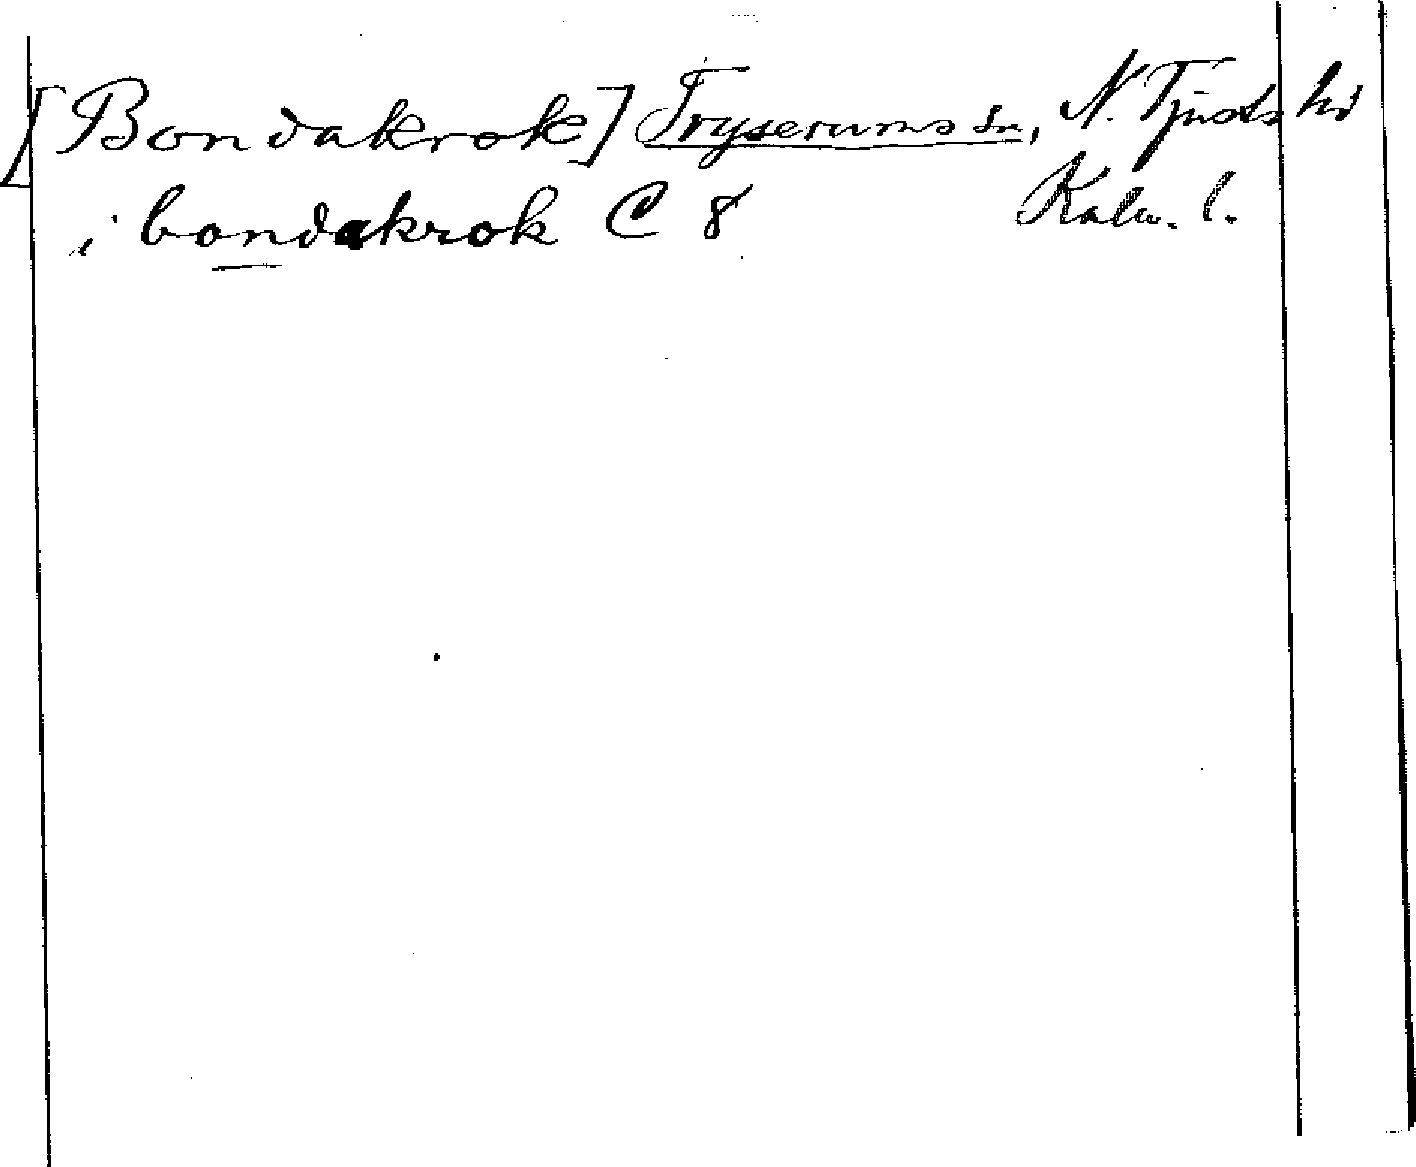 [Bondakrok] Tryserums sn, N. Tjusts hd
i bondakrok C 8 Kalm. l.